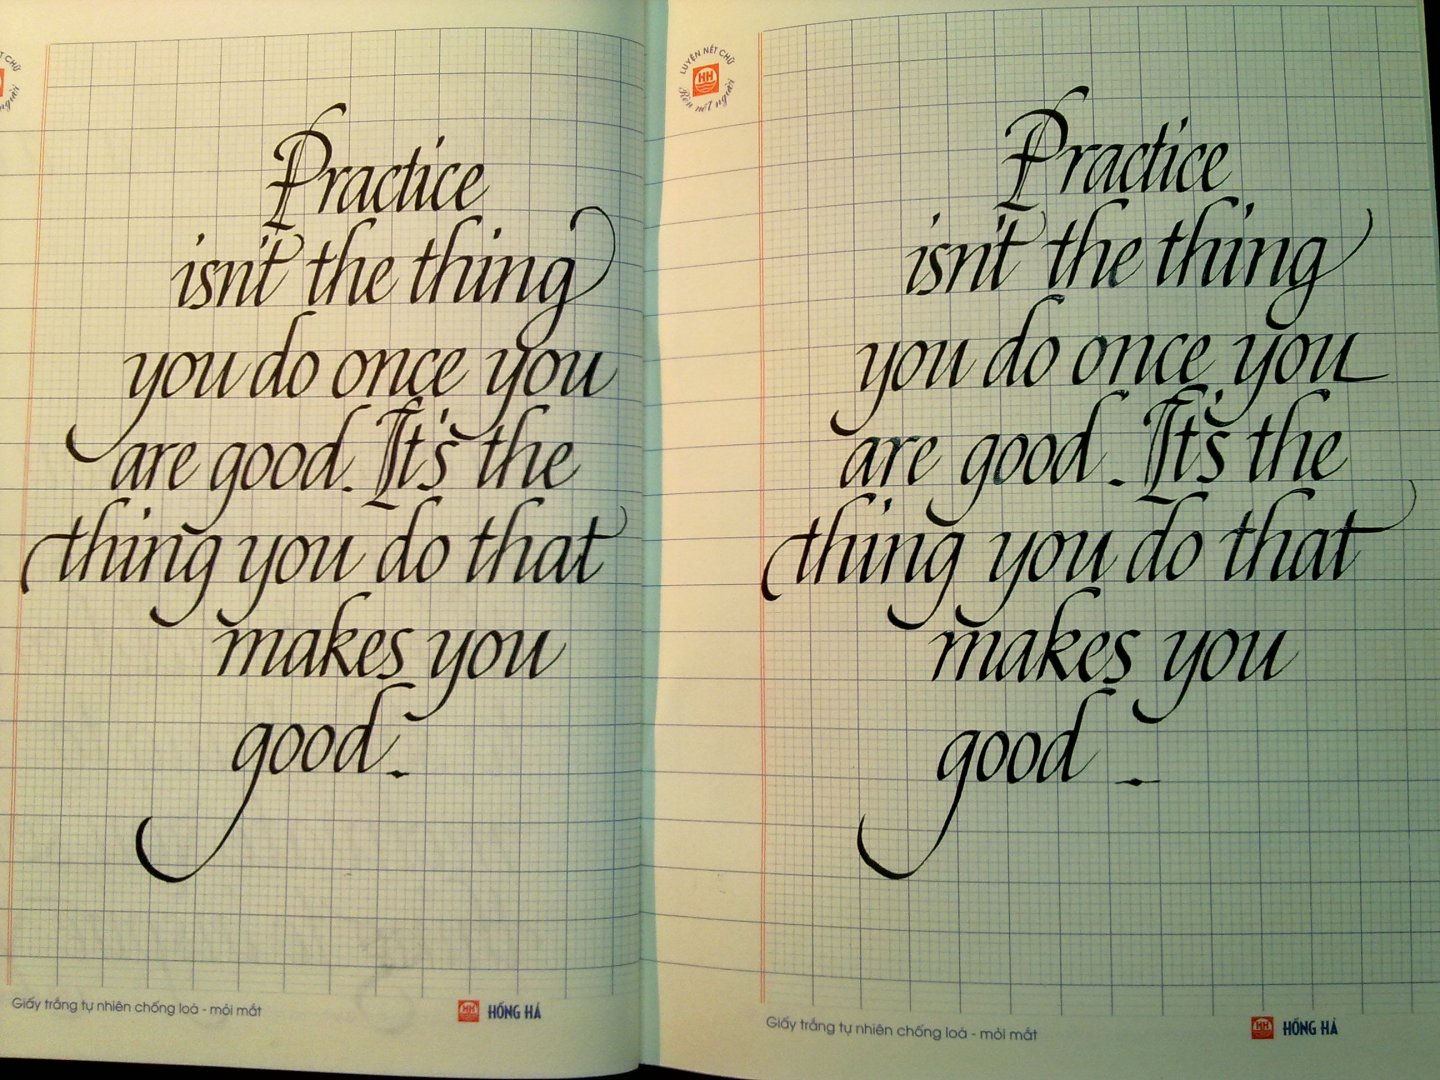 Practice
isn't the thing
you do once you
are good. It's the
thing you do that
makes you
good.
Giấy trắng tự nhiên chống loá - mỏi mắt
HH HỒNG HÀ
LUYỆN NÉT CHỮ
HH
Rèn nết người
Practice
isn't the thing
you do once you
are good. It's the
thing you do that
makes you
good.
Giấy trắng tự nhiên chống loá - mỏi mắt
HH HỒNG HÀ